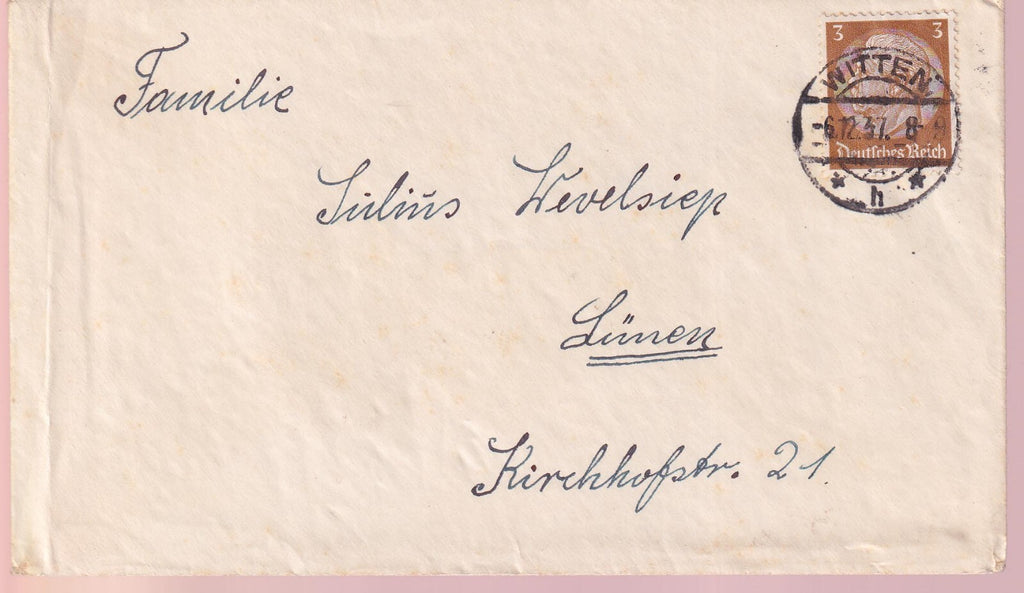 Familie
Julius Wevelsiep
Lünen
Kirchhofstr. 21
3 3
Deutsches Reich
WITTEN
6.12.37. 8-9
h